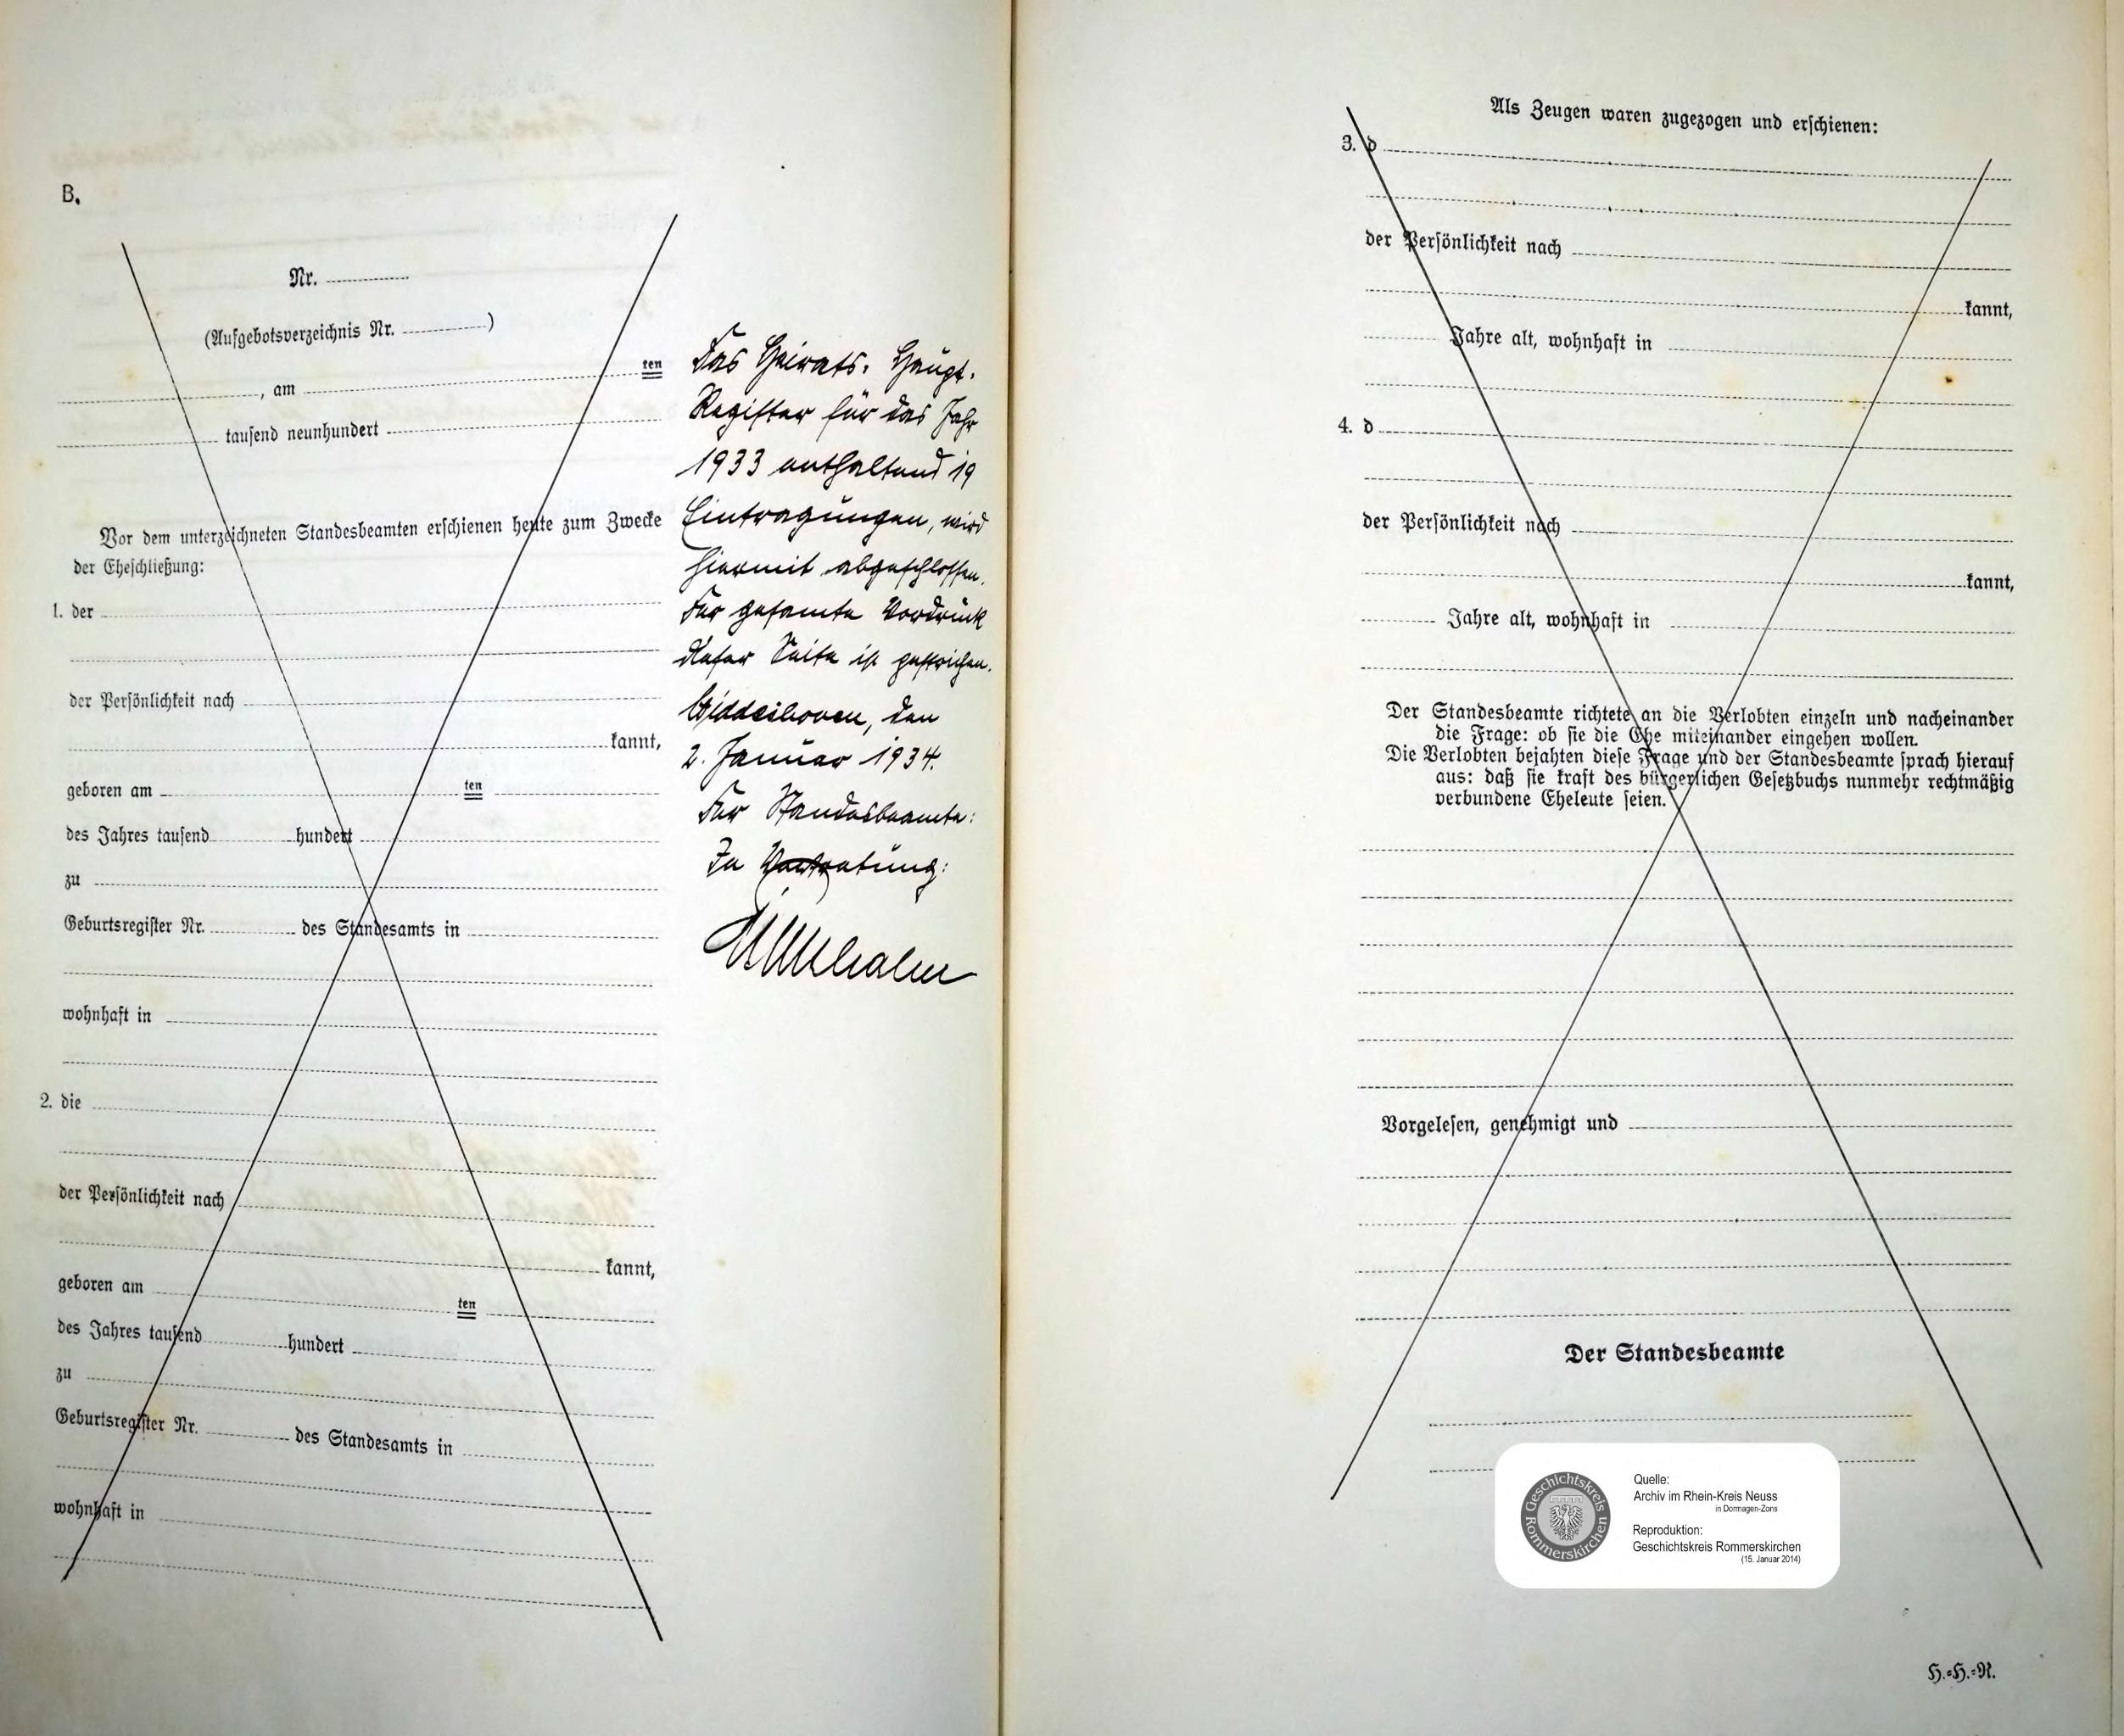 B.
Nr.
(Aufgebotsverzeichnis Nr. )
, am ten
tausend neunhundert
Vor dem unterzeichneten Standesbeamten erschienen heute zum Zwecke
der Eheschließung:
1. der
der Persönlichkeit nach
kannt,
geboren am ten
des Jahres tausend hundert
zu
Geburtsregister Nr. des Standesamts in
wohnhaft in
2. die
der Persönlichkeit nach
kannt,
geboren am ten
des Jahres tausend hundert
zu
Geburtsregister Nr. des Standesamts in
wohnhaft in
Das Heirats-Haupt-
Register für das Jahr
1933 enthaltend 19
Eintragungen, wird
hiermit abgeschlossen.
Der gesamte Vordruck
dieser Seite ist gestrichen.
Widdeshoven, den
2. Januar 1934.
Der Standesbeamte:
In Vertretung:
Als Zeugen waren zugezogen und erschienen:
3. d
der Persönlichkeit nach
kannt,
Jahre alt, wohnhaft in
4. d
der Persönlichkeit nach
kannt,
Jahre alt, wohnhaft in
Der Standesbeamte richtete an die Verlobten einzeln und nacheinander
die Frage: ob sie die Ehe miteinander eingehen wollen.
Die Verlobten bejahten diese Frage und der Standesbeamte sprach hierauf
aus: daß sie kraft des bürgerlichen Gesetzbuchs nunmehr rechtmäßig
verbundene Eheleute seien.
Vorgelesen, genehmigt und
Der Standesbeamte
Geschichtskreis
Rommerskirchen
Quelle:
Archiv im Rhein-Kreis Neuss
in Dormagen-Zons
Reproduktion:
Geschichtskreis Rommerskirchen
(15. Januar 2014)
H.-H.-R.